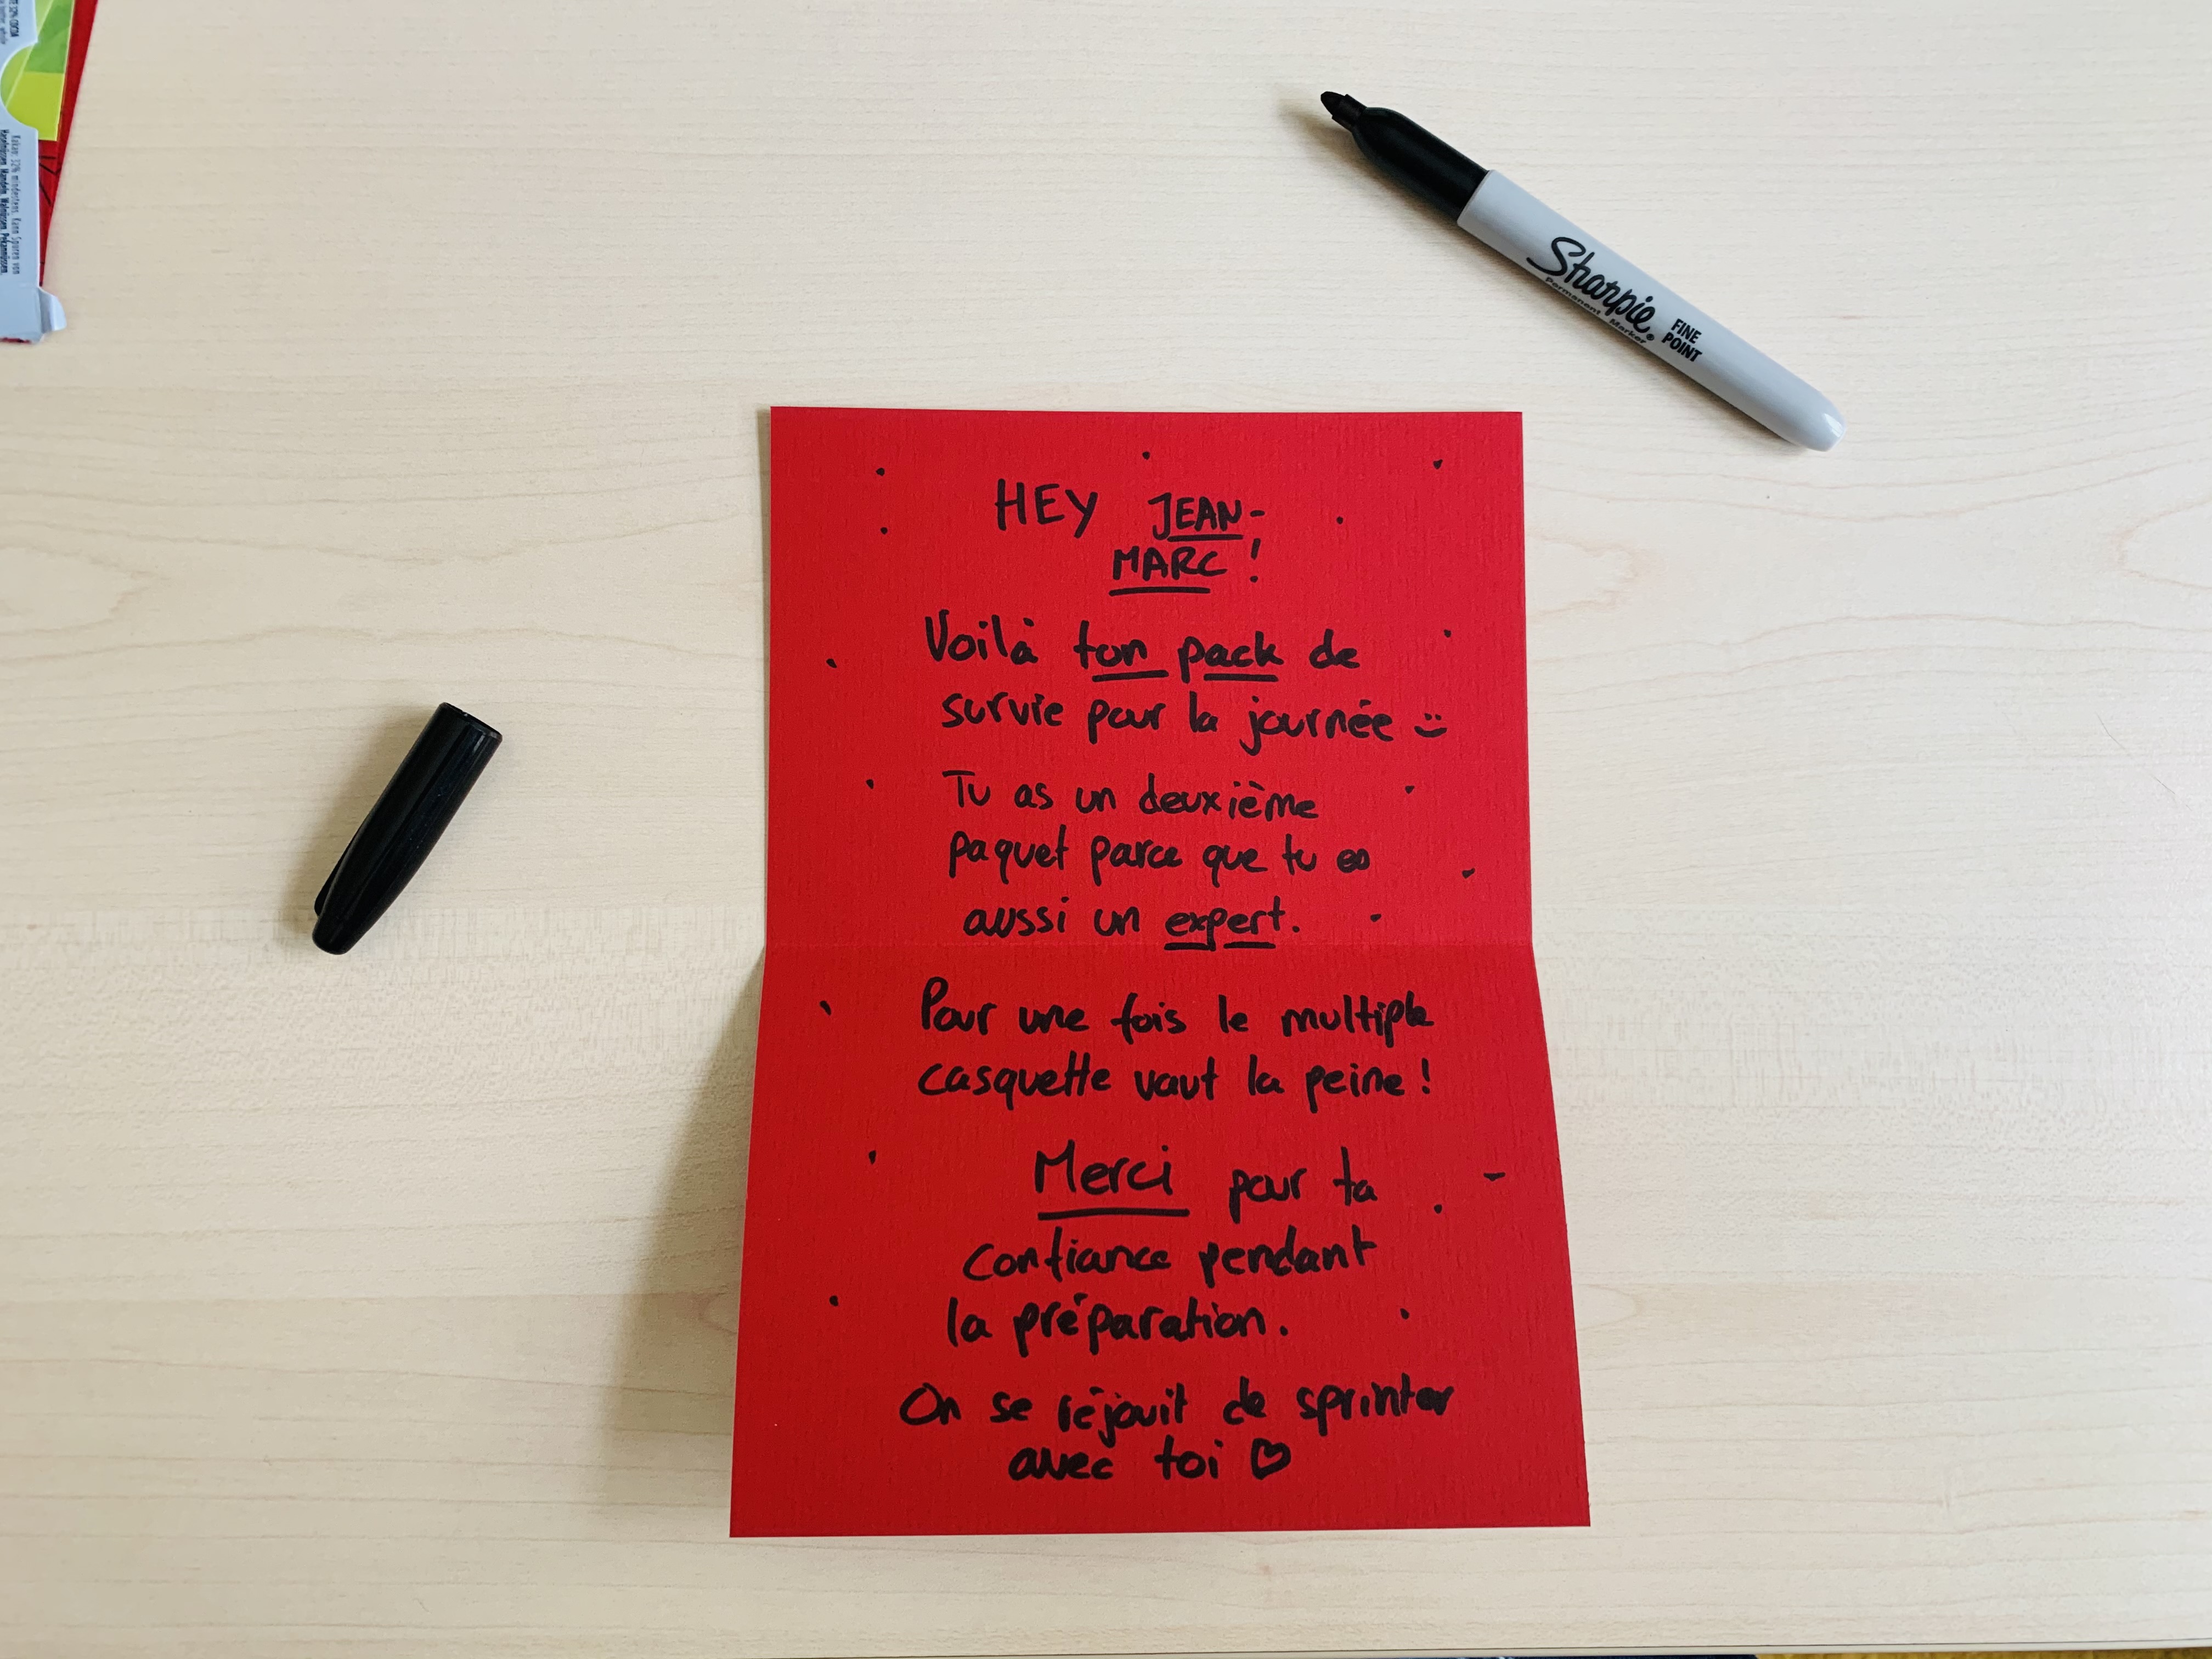 Kakao: 32% mindestens. Kann Spuren von
Haselnüssen, Mandeln, Walnüssen, Pekannüssen,
Sharpie®
Permanent Marker
FINE
POINT
HEY JEAN-
MARC !
Voilà ton pack de
survie pour la journée
Tu as un deuxième
paquet parce que tu es
aussi un expert.
Pour une fois le multiple
casquette vaut la peine !
Merci pour ta
confiance pendant
la préparation.
On se réjouit de sprinter
avec toi ♡